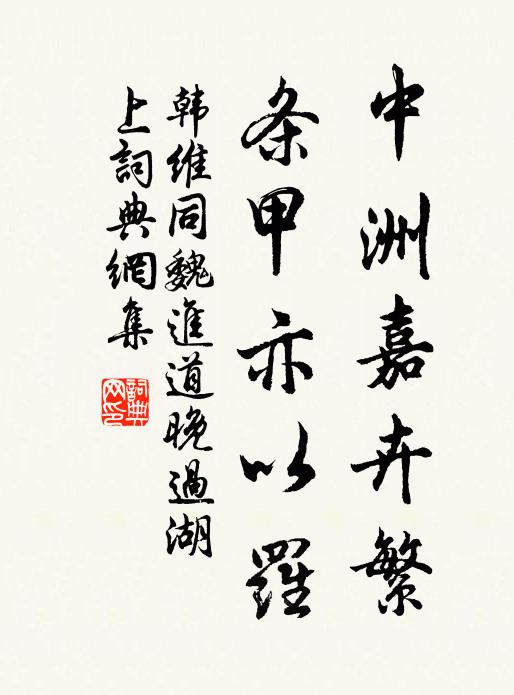 中洲嘉卉繁
条甲亦以羅
韩維同魏進道晚過湖
上詞典網集
詞典网印